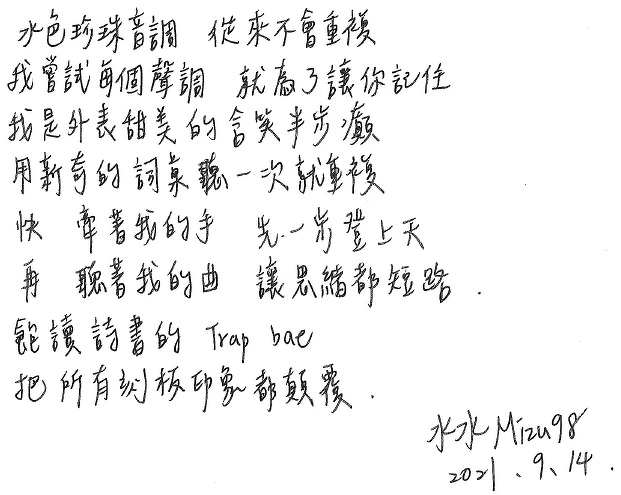 水色珍珠音調 從來不會重複
我嘗試每個聲調 就為了讓你記住
我是外表甜美的含笑半步癲
用新奇的詞彙聽一次就重複
快 牽著我的手 先一步登上天
再 聽著我的曲 讓思緒都短路.
飽讀詩書的 Trap bae
把所有刻板印象都顛覆.
水水Mizu98
2021、9、14.